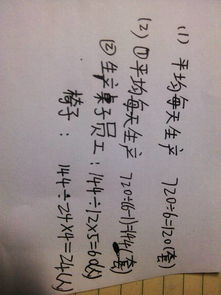 (1) 平均每天生产 720÷6=120(套)
(2) ①平均每天生产 720÷(6-1)=144(套)
② 生产桌子员工：144÷12×5=60(人)
椅子：144÷24×4=24(人)